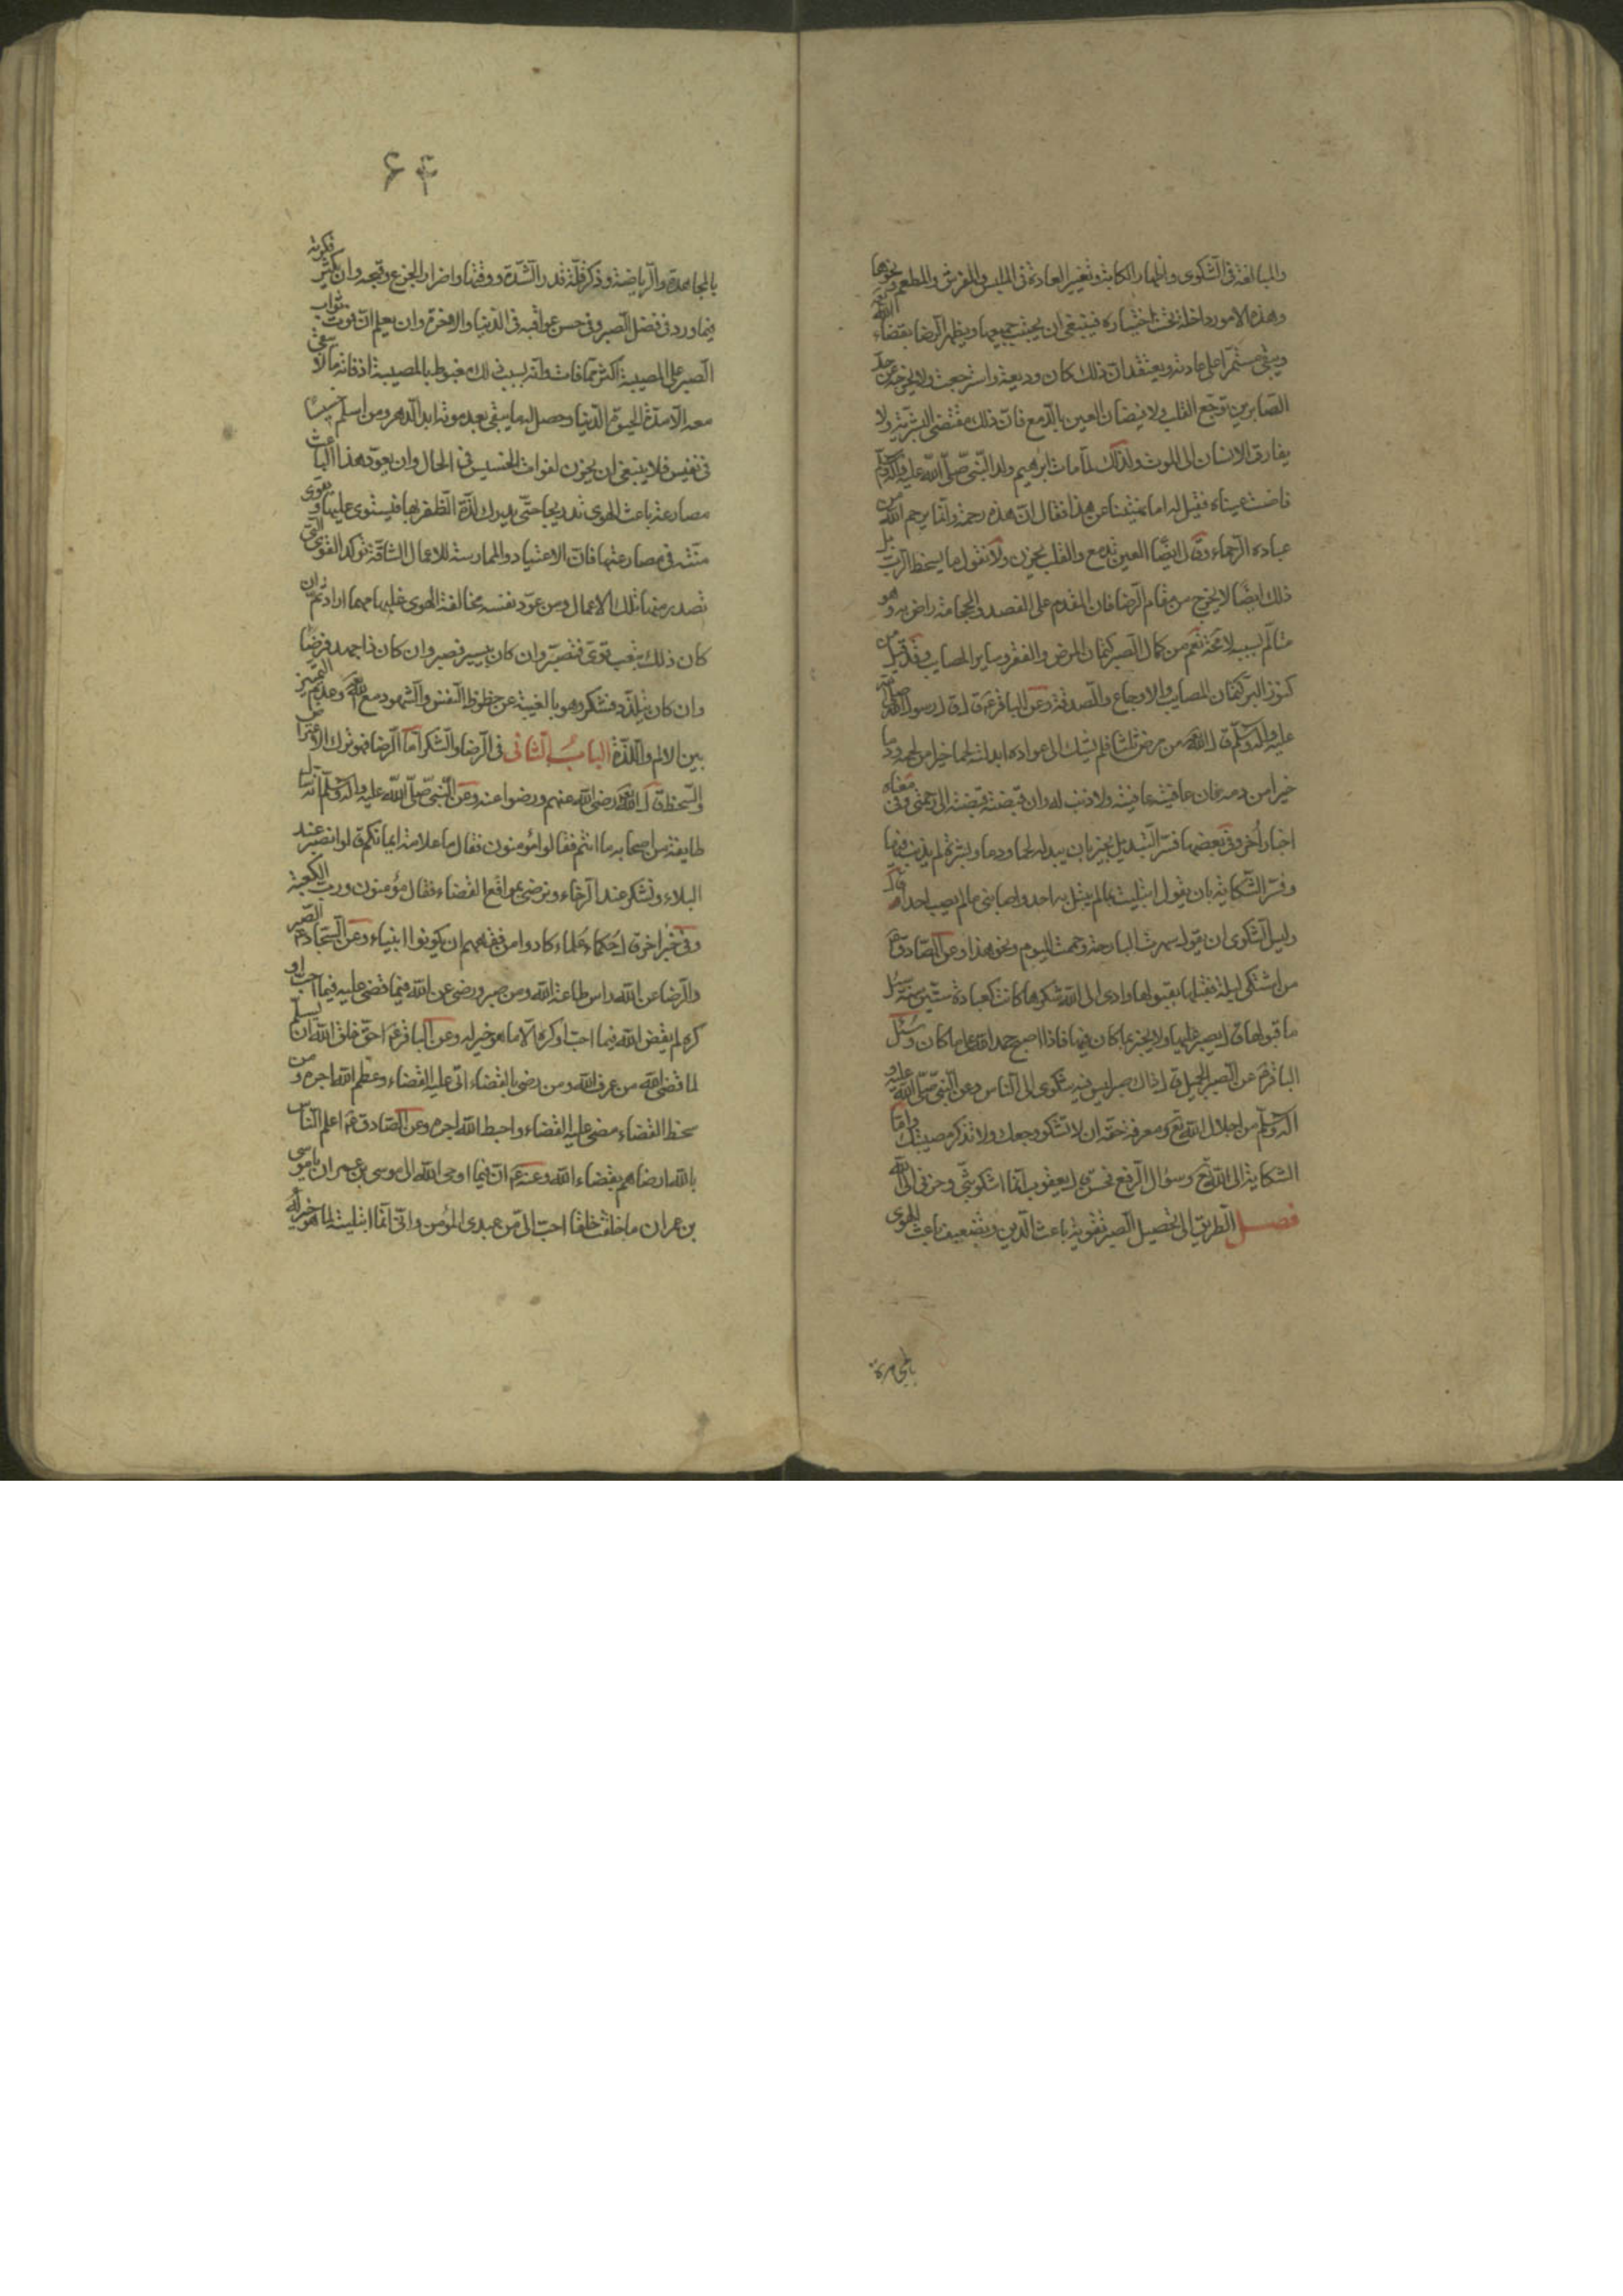 والمبالغة فى الشكوى واظهار الكابة وتغيير العادة فى الملبس والمفرش والمطعم ونحوها
وهذه الامور داخلة تحت اختياره فينبغى ان يجتنب جميعها ويظهر الرضا بقضاء الله تعالى
ويبقى مستمرا على عادته ويعتقد ان ذلك كان وديعة واسترجعت ولا يخرجه عن حد
الصابرين توجع القلب ولا فيضان العين بالدمع فان ذلك مقتضى البشرية ولا
يفارق الانسان الى الموت ولذلك لما مات ابرهيم ولد النبى صلى الله عليه واله وسلم
فاضت عيناه فقيل له اما نهيتنا عن هذا فقال ان هذه رحمة وانما يرحم الله من
عباده الرحماء وقال ايضا العين تدمع والقلب يحزن ولا نقول ما يسخط الرب بل
ذلك ايضا لا يخرج من مقام الرضا فان المقدم على الفصد والحجامة راض به وهو
متالم بسببه لا محة نعم من كمال الصبر كتمان المرض والفقر وساير المصايب وقد قيل من
كنوز البر كتمان المصايب والاوجاع والصدقة وعن الباقر ع ق ل ق ل رسول الله صلى الله
عليه واله وسلم ق ل الله من مرض ثلثا فلم يشك الى عواده ابدلته لحما خيرا من لحمه ودما
خيرا من دمه فان عافيته عافيته ولا ذنب له وان قبضته قبضته الى رحمتى وفى معناه
اخبار اخر وفى بعضها فسر التبديل بخير بان يبدله لحما ودما وبشرة لم يذنب فيها
وفسر الشكاية بان يقول ابتليت بما لم يبتل به احد واصابنى ما لم يصب احدا ق ل
وليس الشكوى ان يقول سهرت البارحة وحممت اليوم ونحو هذا وعن الصادق ع
من اشتكى ليلة فقبلها بقبولها وادى الى الله شكرها كانت كعبادة ستين سنة سئل
ما قبولها ق ل يصبر عليها ولا يخبر بما كان فيها فاذا اصبح حمد الله على ما كان وسئل
الباقر ع عن الصبر الجميل ق ل ذاك صبر ليس فيه شكوى الى الناس وعن النبى صلى الله عليه و
اله وسلم من اجلال الله تع ومعرفة حقه ان لا تشكو وجعك ولا تذكر مصيبتك واما
الشكاية الى الله تع وسؤال الرفع فحسن ق ل يعقوب انما اشكو بثى وحزنى الى الله
فصل الطريق الى تحصيل الصبر تقوية باعث الدين وتضعيف باعث الهوى
بالمجاهدة
۶۴
بالمجاهدة والرياضة وذكر قلة قدر الشدة ووقتها واضرار الجزع وقبحه وان يكثر فكرته
فيما ورد فى فضل الصبر وفى حسن عواقبه فى الدنيا والاخرة وان يعلم ان فوت ثواب
الصبر على المصيبة اكثر مما فات وانه بسبب ذلك مغبوط بالمصيبة اذ فاته ما لا يبقى
معه الا مدة الحيوة الدنيا وحصل له ما يبقى بعد موته ابد الدهر ومن اسلم خسيسا
فى نفيس فلا ينبغى ان يحزن لفوات الخسيس فى الحال وان يعود هذا الباعث
مصارعة باعث الهوى تدريجا حتى يدرك لذة الظفر بها فيستوى عليها ويقوى
منته فى مصارعتها فان الاعتياد والممارسة للاعمال الشاقة تؤكد القوى التى
تصدر منها تلك الاعمال ومن عود نفسه مخالفة الهوى غلبها مهما اراد ثم ان
كان ذلك بتعب قوى فتصبر وان كان بيسير فصبر وان كان ذا جهد فرضا
وان كان بتلذذ فشكر وهو بالغيبة عن حظوظ النفس والشهود مع الله وعدم التمييز
بين الالم واللذة الباب الثانى فى الرضا والشكر اما الرضا فهو ترك الاعتراض
والسخط ق ل الله تعالى رضى الله عنهم ورضوا عنه وعن النبى صلى الله عليه واله وسلم انه سال
طايفة من اصحابه ما انتم فقالوا مؤمنون فقال ما علامة ايمانكم ق لوا نصبر عند
البلاء ونشكر عند الرخاء ونرضى بمواقع القضاء فقال مؤمنون ورب الكعبة
وفى خبر اخر ق ل حكماء علماء كادوا من فقههم ان يكونوا انبياء وعن السجاد ع الصبر
والرضا عن الله راس طاعة الله ومن صبر ورضى عن الله فيما قضى عليه فيما احب او
كره لم يقض الله فيما احب او كره الا ما هو خير له وعن الباقر ع احق خلق الله ان يسلم
لما قضى الله من عرف الله ومن رضى بالقضاء اتى عليه القضاء وعظم الله اجره ومن
سخط القضاء مضى عليه القضاء واحبط الله اجره وعن الصادق ع اعلم الناس
بالله ارضاهم بقضاء الله وعنه ع ان فيما اوحى الله الى موسى بن عمران يا موسى
بن عمران ما خلقت خلقا احب الى من عبدى المؤمن وانى انما ابتليته لما هو خير له